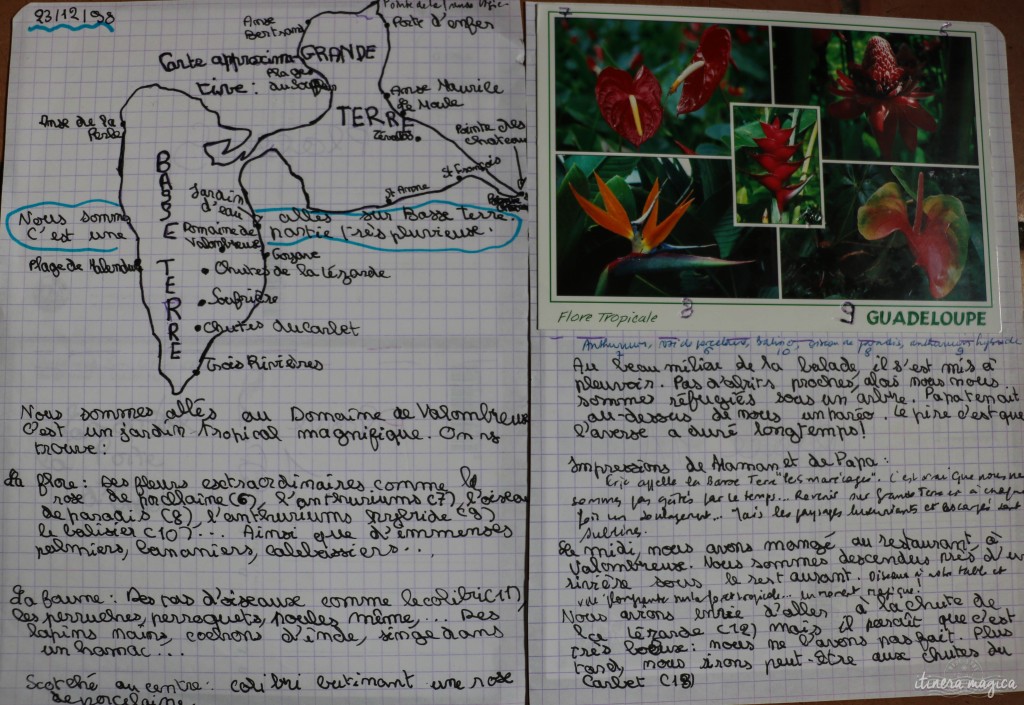 23/12/98
Carte approxima-
tive :
Anse
Bertrand
GRANDE
TERRE
Porte d'enfer
Plage
du Souffleur
Anse Maurice
Le Moule
Zévallos
Pointe des
chateaux
St François
St Anne
Anse de la
Perle
BASSE TERRE
Jardin
d'eau
Domaine de
Valombreuse
Goyave
Chutes de la Lézarde
Soufrière
Chutes du Carbet
Trois Rivières
Plage de Malendure
Nous sommes allés sur Basse Terre
C'est une partie très pluvieuse.
Nous sommes allés au Domaine de Valombreuse
C'est un jardin tropical magnifique. On y
trouve :
La flore : Des fleurs extraordinaires comme la
rose de porcelaine (6), l'anthuriums (7), l'oiseau
de paradis (8), l'anthuriums hybride (9)
le balisier (10)... Ainsi que d'immenses
palmiers, bananiers, calebassiers...
La faune : Des tas d'oiseaux comme le colibri (11),
les perruches, perroquets, poules même,... Des
lapins nains, cochons d'inde, singe dans
un hamac...
Scotché au centre : colibri butinant une rose
de porcelaine.
7
8
9
Flore Tropicale
GUADELOUPE
Anthuriums, rose de porcelaine, balisier, oiseau de paradis, anthurium hybride
7 6 10 8 9
Au beau milieu de la balade, il s'est mis à
pleuvoir. Pas d'abris proches, alors nous nous
sommes réfugiés sous un arbre. Papa tenait
au-dessous de nous un paréo. Le pire c'est que
l'averse a duré longtemps !
Impressions de Maman et de Papa :
Eric appelle la Basse Terre "les marécages". C'est vrai que nous ne
sommes pas gâtés par le temps... Revenir sur Grande Terre est à chaque
fois un soulagement... Mais les paysages luxuriants et escarpés sont
sublimes.
Le midi, nous avons mangé au restaurant, à
Valombreuse. Nous sommes descendus près d'une
rivière sous le restaurant. Oiseaux à notre table et
vue plongeante sur la forêt tropicale... un moment magique !
Nous avions envie d'aller à la chute de
la Lézarde (12) mais il paraît que c'est
très boueux : nous ne l'avons pas fait. Plus
tard, nous irons peut-être aux chutes du
Carbet (13)
itinera magica